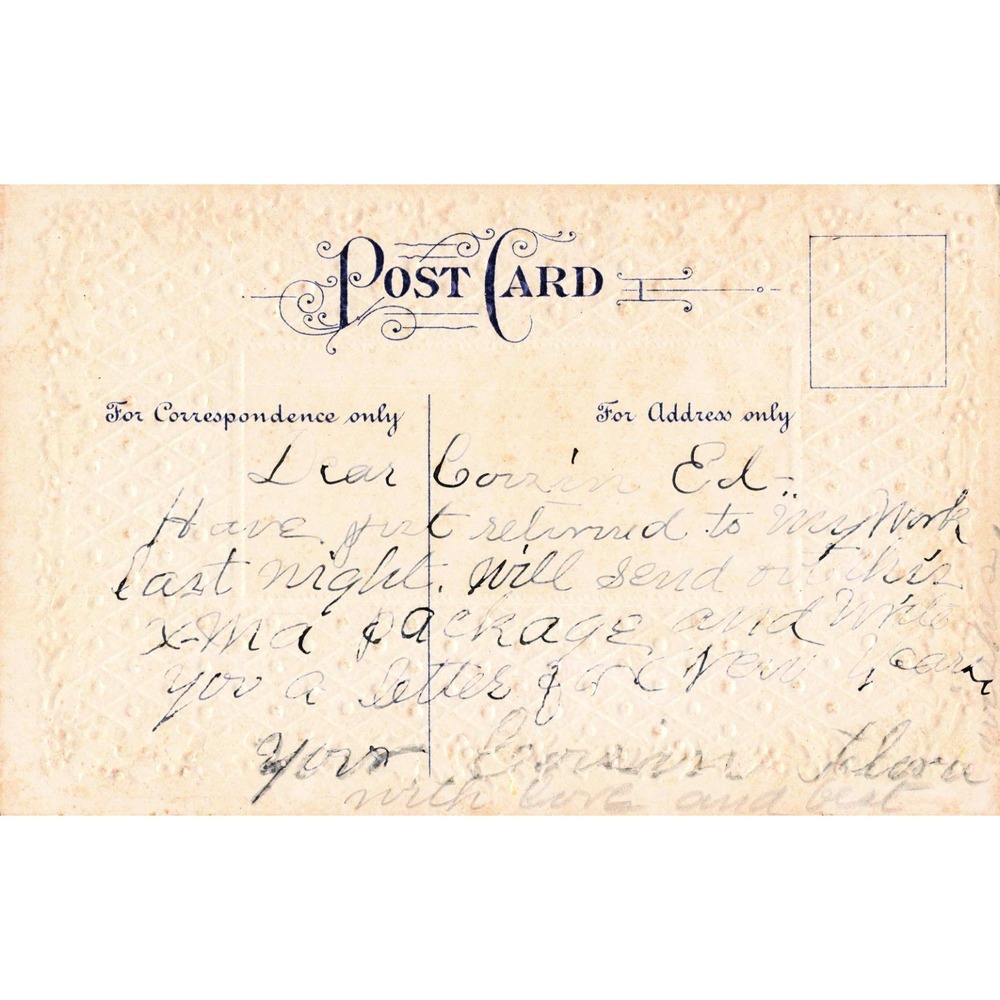 POST CARD
For Correspondence only
For Address only
Dear Cousin Ed -
Have just returned to My Work
last night. Will send out this
x-Ma package and Write
you a letter for New Years
Your Cousin Flora
with love and best